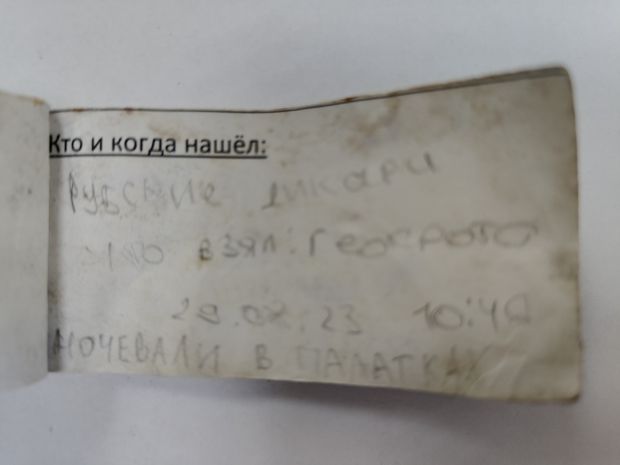 Кто и когда нашёл:
Русские дикари
взял: Геокрото
23 10:40
НОЧЕВАЛИ В ПАЛАТКАХ